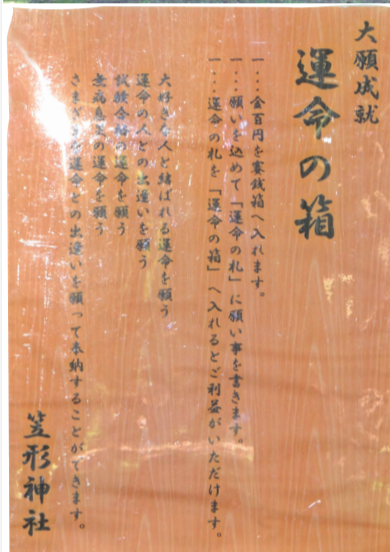 大願成就
運命の箱
一...金百円を賽銭箱へ入れます。
一...願いを込めて「運命の札」に願い事を書きます。
一...運命の札を「運命の箱」へ入れるとご利益がいただけます。
大好きな人と結ばれる運命を願う
運命の人との出逢いを願う
試験合格の運命を願う
無病息災の運命を願う
さまざまな運命との出逢いを願って奉納することができます。
笠形神社